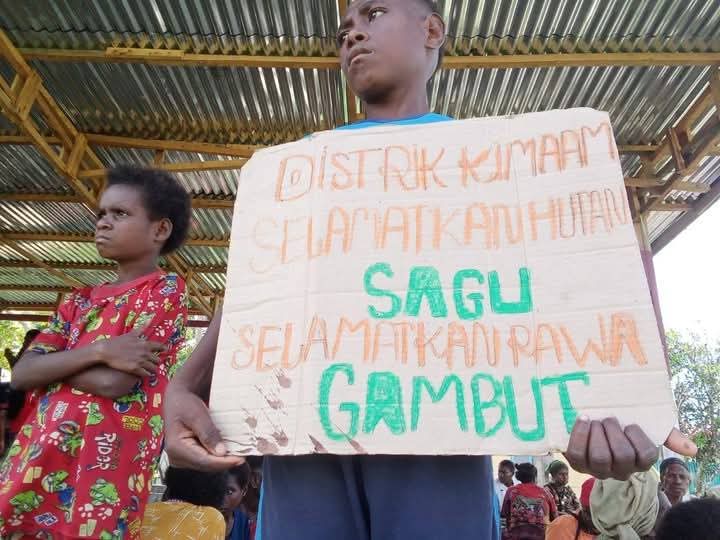 DISTRIK KIMAAM
SELAMATKAN HUTAN
SAGU
SELAMATKAN RAWA
GAMBUT